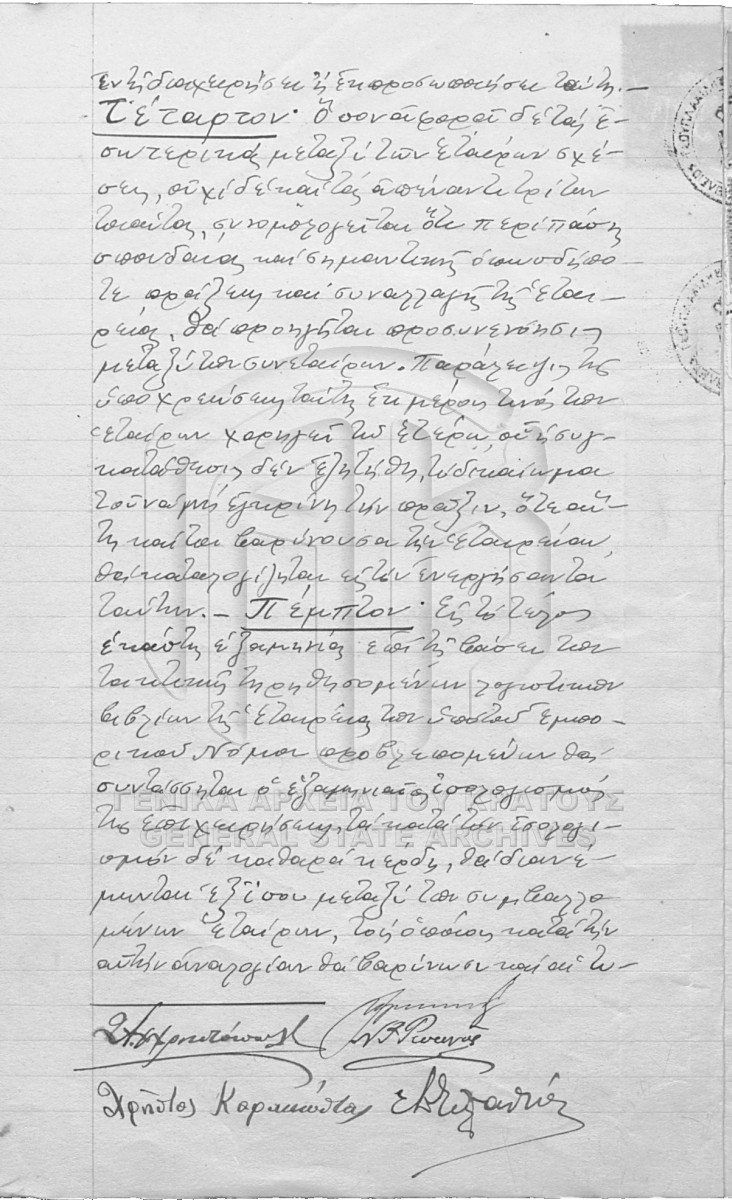 εν τη διαχειρήσει ή εκπροσωπήσει ταύτη.—
Τέταρτον· Όσον αφορά δε τας ε-
σωτερικάς μεταξύ των εταίρων σχέ-
σεις, ουχί δε και τας απέναντι τρίτων
τοιαύτας, συνομολογείται ότι περί πάσης
σπουδαίας και σημαντικής οπωσδήπο-
τε πράξεως και συναλλαγής της εται-
ρείας, θα προηγήται προσυνεννόησις
μεταξύ των συνεταίρων. Παράλειψις της
υποχρεώσεως ταύτης εκ μέρους τινός των
εταίρων χορηγεί τω ετέρω, ου η συγ-
κατάθεσις δεν εζητήθη, το δικαίωμα
του να μη εγκρίνη την πράξιν, ότε αύ-
τη καίτοι βαρύνουσα την εταιρείαν,
θα καταλογίζηται εις τον ενεργήσαντα
ταύτην.— Πέμπτον· Εις το τέλος
εκάστης εξαμηνίας επί τη βάσει των
τακτικώς τηρηθησομένων λογιστικών
βιβλίων της εταιρείας των υπό του Εμπο-
ρικού Νόμου προβλεπομένων θα
συντάσσηται ο εξαμηνιαίος ισολογισμός
της επιχειρήσεως, τα κατά τον ισολογι-
σμόν δε καθαρά κέρδη, θα διανέ-
μωνται εξ ίσου μεταξύ των συμβαλλο-
μένων εταίρων, τους οποίους κατά την
αυτήν αναλογίαν θα βαρύνωσι και αι τυ-
Χρήστος Καρακώστας
ΓΕΝΙΚΑ ΑΡΧΕΙΑ ΤΟΥ ΚΡΑΤΟΥΣ
GENERAL STATE ARCHIVES